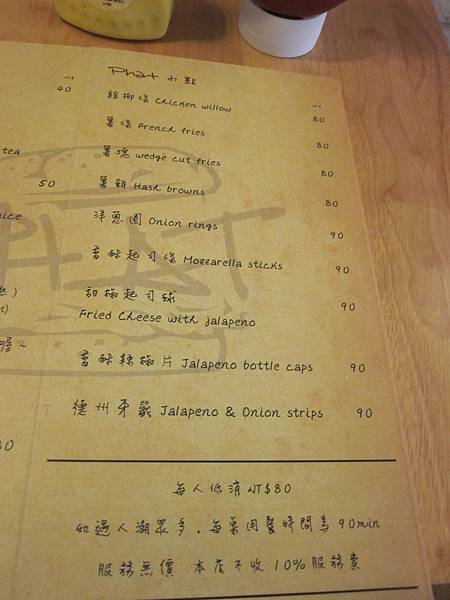 Phat 小點
NT
雞柳條 Chicken willow 80
薯條 French fries 80
薯塊 wedge cut fries 80
薯餅 Hash browns 80
洋蔥圈 Onion rings 90
香酥起司條 Mozzarella sticks 90
甜椒起司球 90
Fried Cheese with jalapeno
香酥辣椒片 Jalapeno bottle caps 90
德州牙籤 Jalapeno & Onion strips 90
每人低消 NT$80
如遇人潮眾多，每桌用餐時間為 90min
服務無價 本店不收 10% 服務費
NT
40
tea
50
PHAT